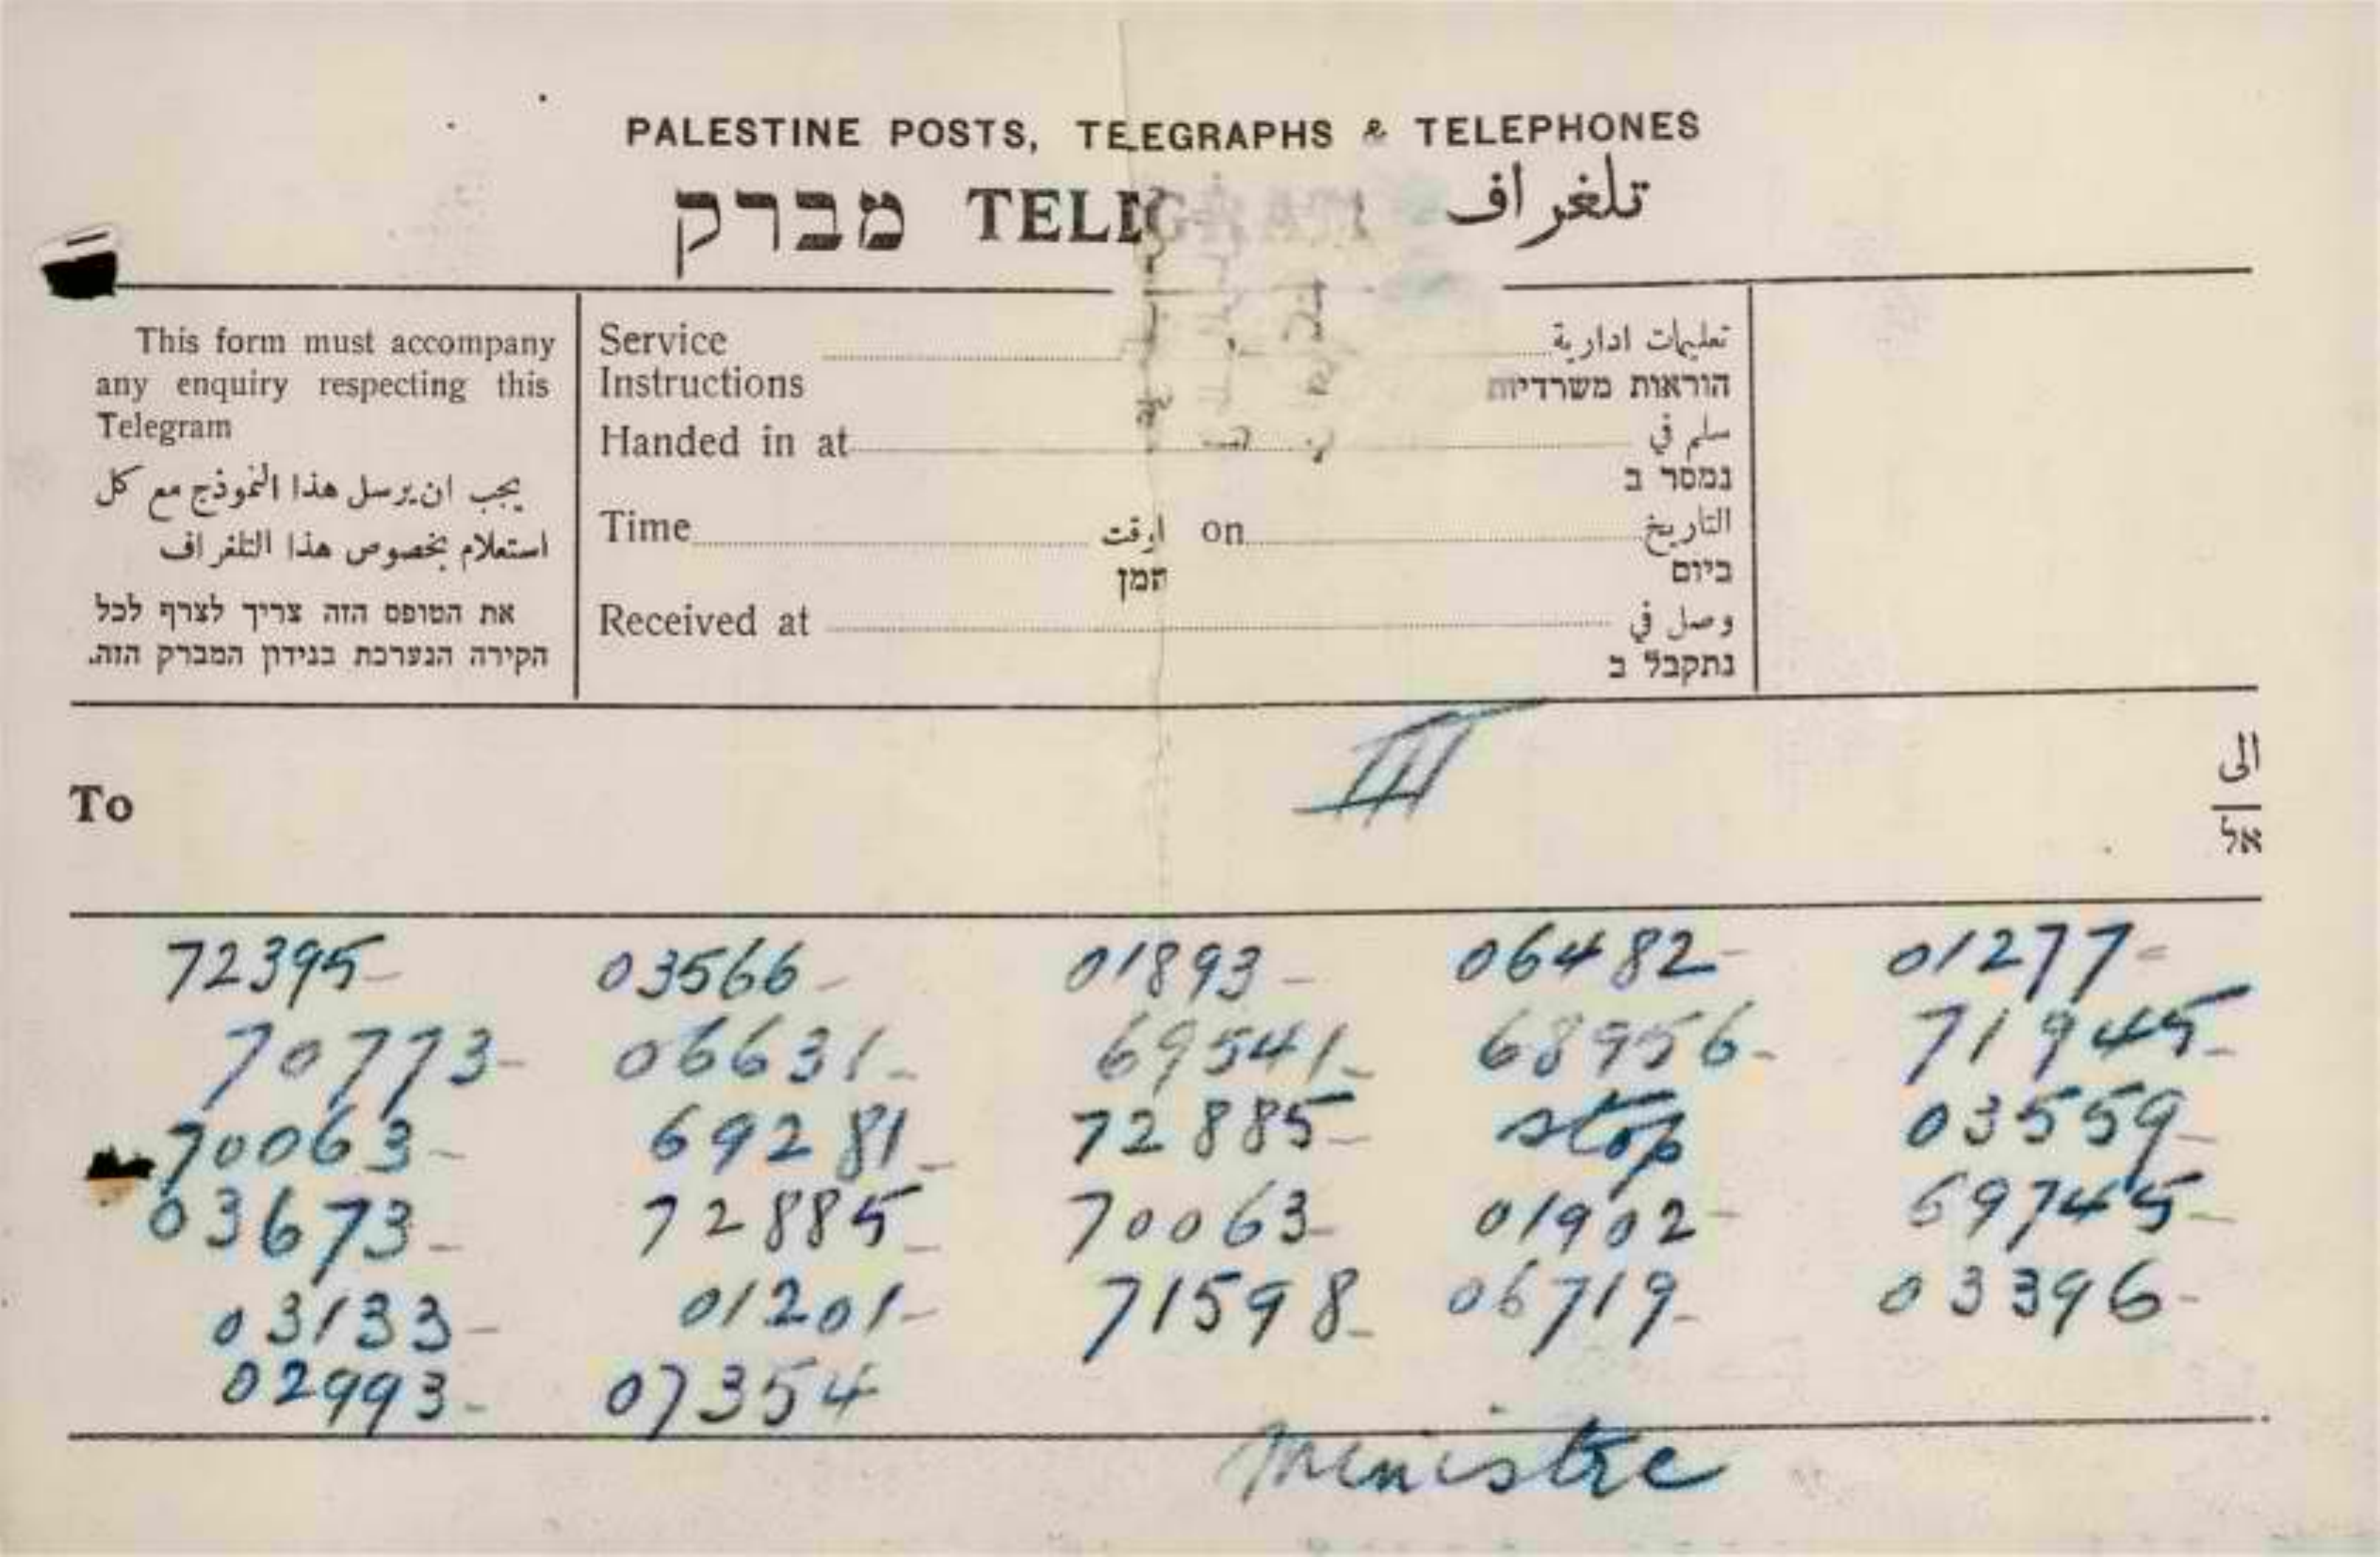 PALESTINE POSTS, TELEGRAPHS & TELEPHONES
מברק TELEGRAM تلغراف
This form must accompany
any enquiry respecting this
Telegram
يجب ان يرسل هذا النموذج مع كل
استعلام بخصوص هذا التلغراف
את הטופס הזה צריך לצרף לכל
חקירה הנערכת בנידון המברק הזה.
Service تعليمات ادارية
Instructions הוראות משרדיות
Handed in at سلم في
נמסר ב
Time اوقت on التاريخ
הזמן ביום
Received at وصل في
נתקבל ב
III
To الى
אל
72395- 03566- 01893- 06482- 01277-
70773- 06631- 69541- 68956- 71945-
70063- 69281- 72885- stop 03559-
03673- 72885- 70063- 01902- 69745-
03133- 01201- 71598- 06719- 03396-
02993- 07354
Ministre